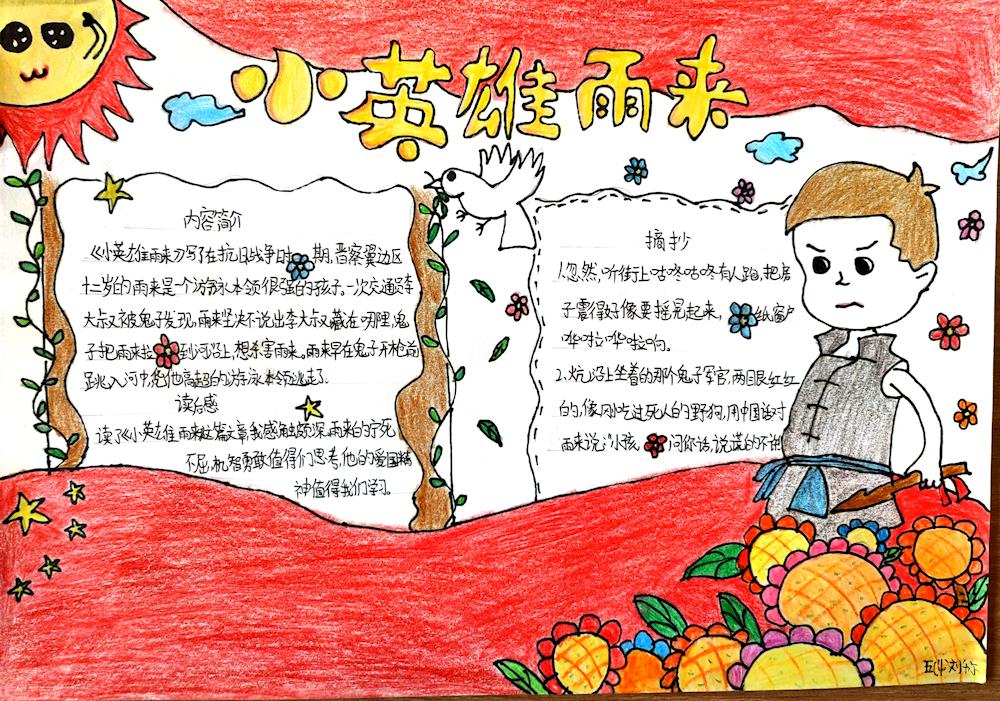 小英雄雨来
内容简介
《小英雄雨来》写在抗日战争时期,晋察冀边区
十二岁的雨来是个游泳本领很强的孩子。一次交通员李
大叔被鬼子发现,雨来坚决不说出李大叔藏在哪里,鬼
子把雨来拉到河沿上,想杀害雨来。雨来早在鬼子开枪前
跳入河中,他高超的游泳本领逃走了。
读后感
读了《小英雄雨来》这篇文章,我感触颇深,雨来的宁死
不屈,机智勇敢值得们思考,他的爱国精
神值得我们学习。
摘抄
1.忽然,听街上咕咚咕咚有人跑,把房
子震得好像要摇晃起来,纸窗户
哗啦哗啦响。
2.炕沿上坐着的那个鬼子军官,两眼红红
的,像刚吃过死人的野狗,用中国话对
雨来说:“小孩,问你话,说谎的不许
五(4)刘